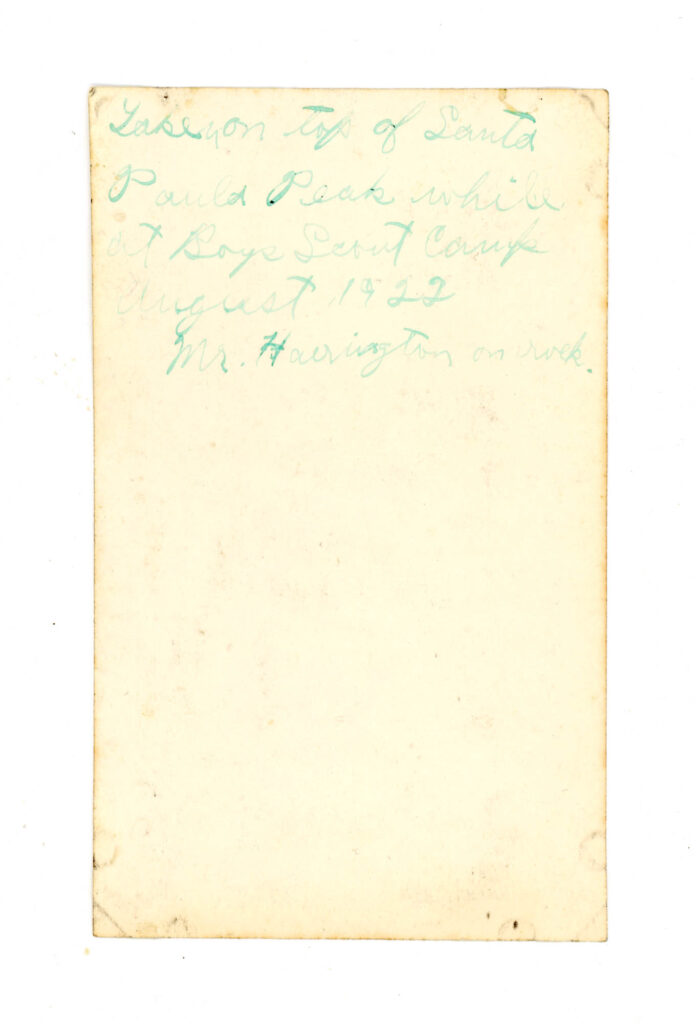 Taken on top of Santa
Paula Peak while
at Boys Scout Camp
August 1922
Mr. Harrington on rock.